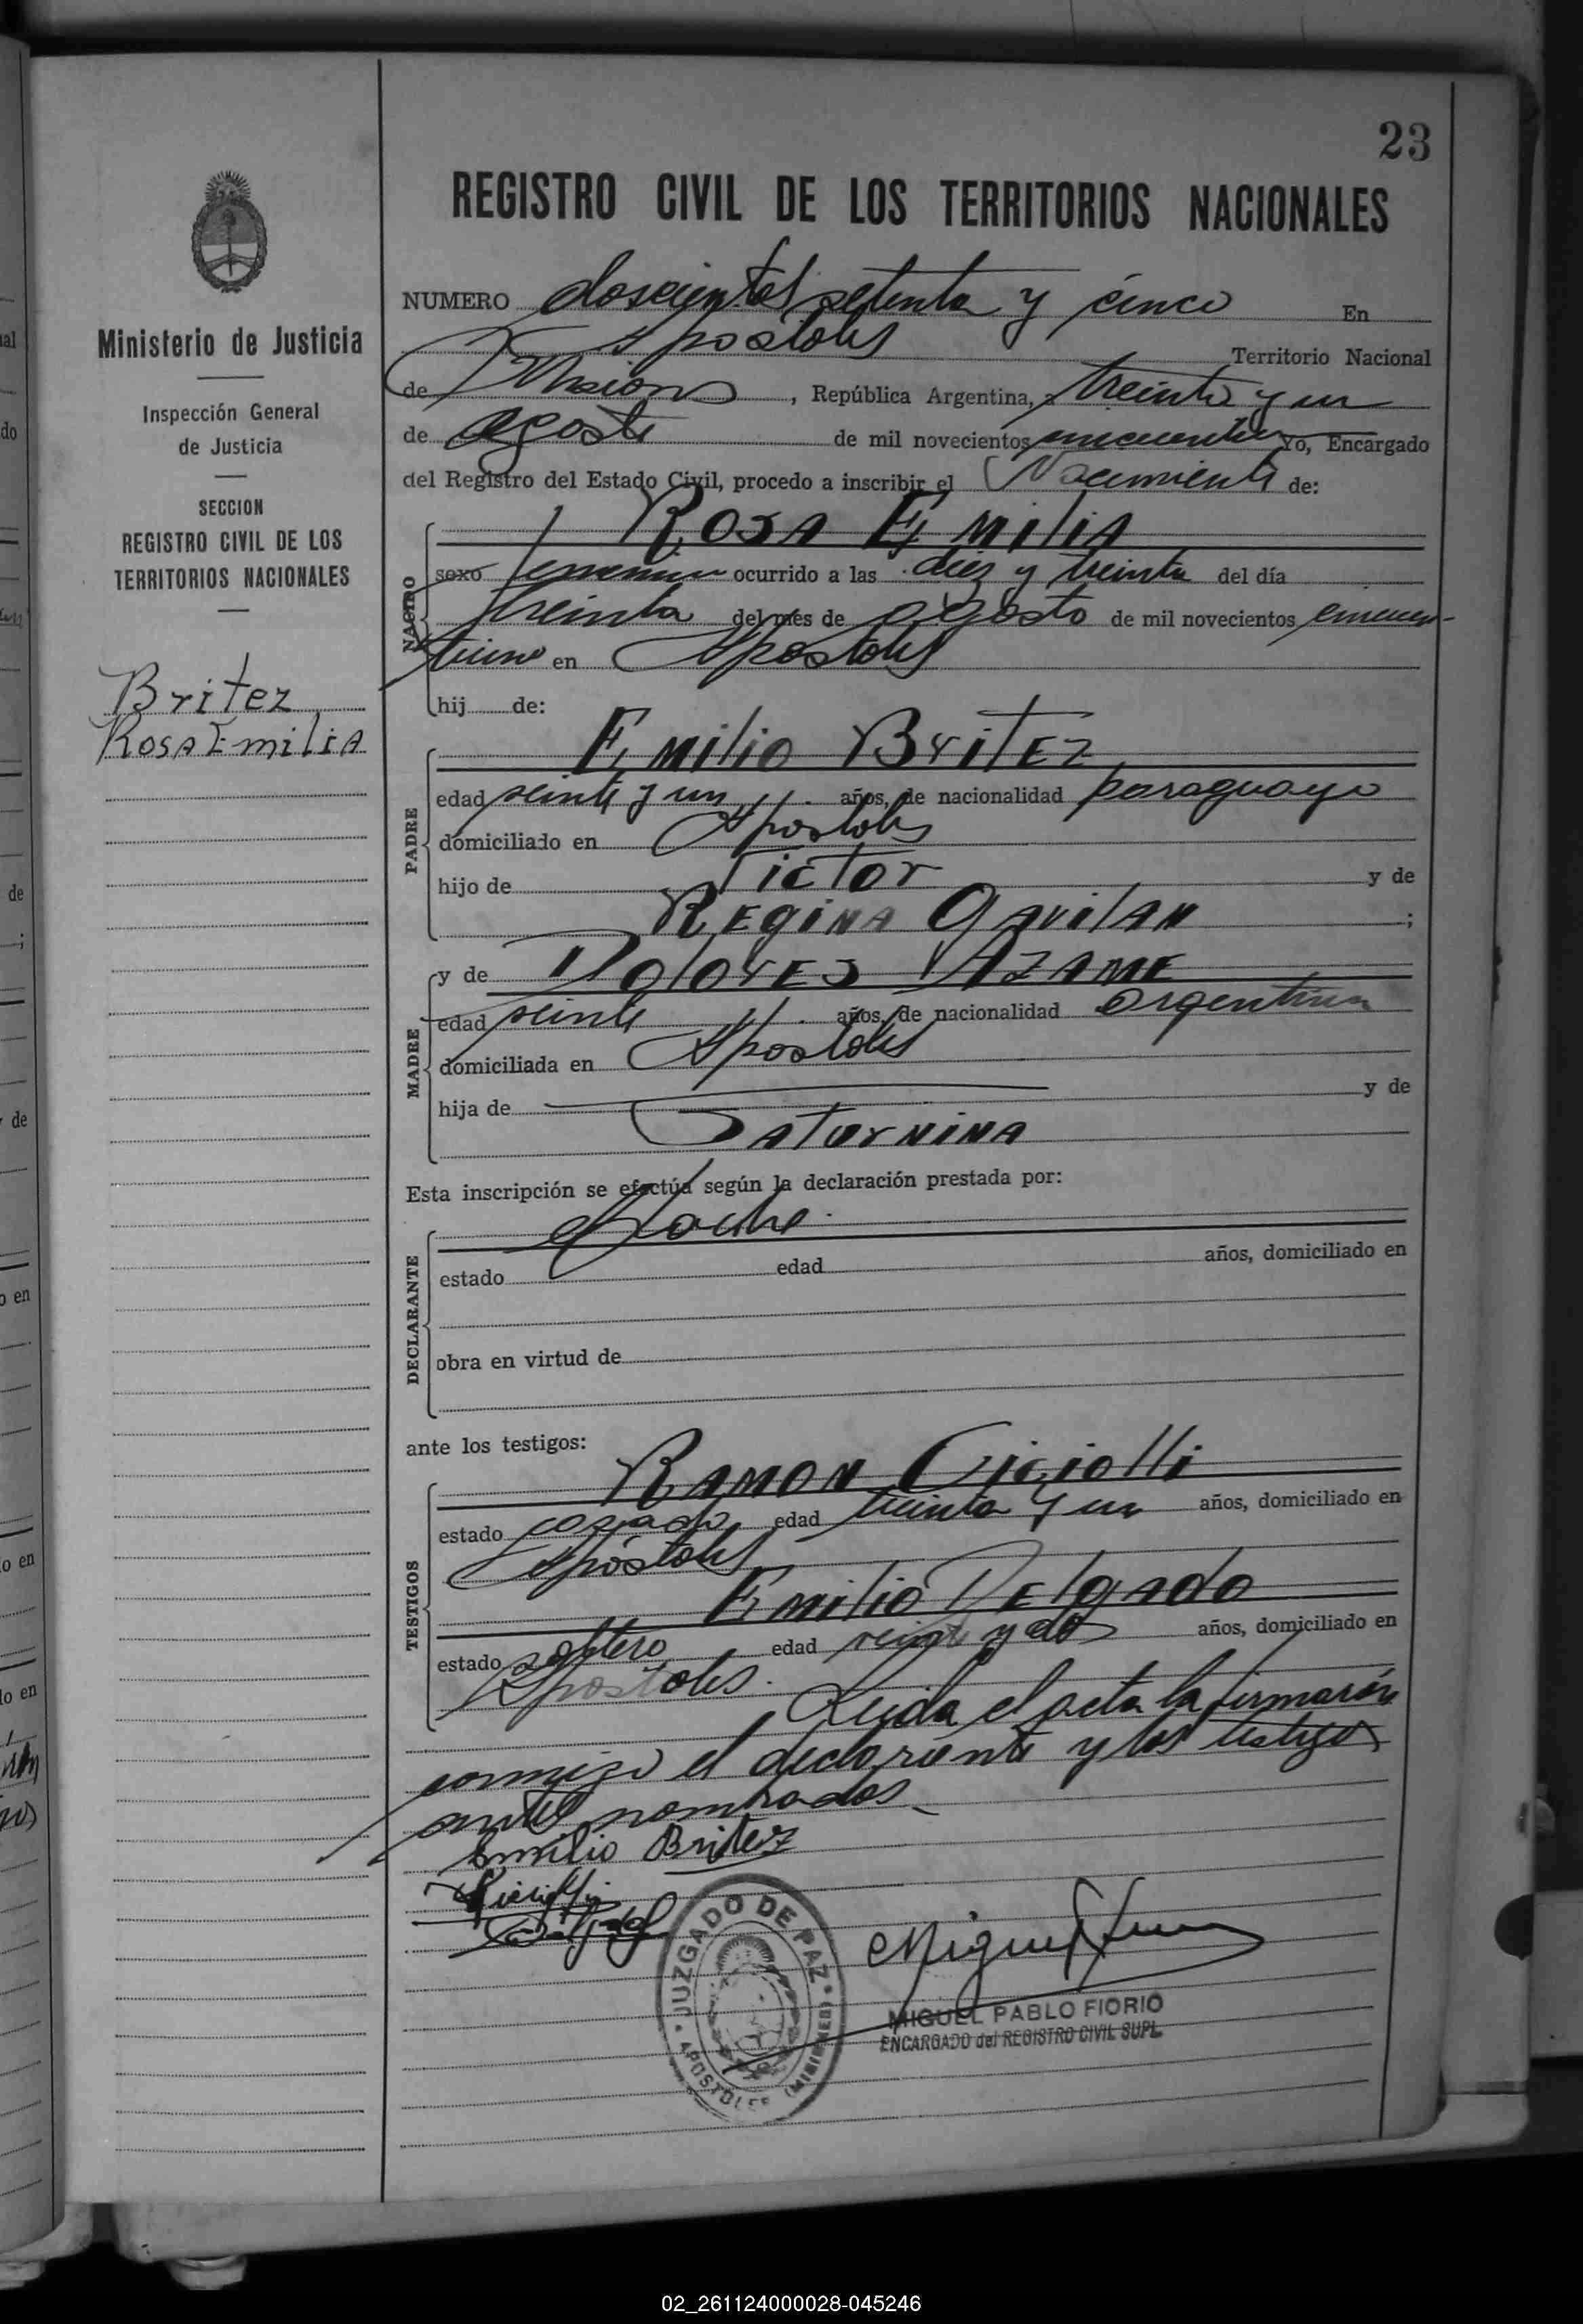 23
REGISTRO CIVIL DE LOS TERRITORIOS NACIONALES
NUMERO doscientos setenta y cinco En
Apóstoles Territorio Nacional
de Misiones, República Argentina, a treinta y un
de agosto de mil novecientos Yo, Encargado
del Registro del Estado Civil, procedo a inscribir el Nacimiento de:
Rosa Emilia
NACIDO
sexo femenino ocurrido a las diez y treinta del día
treinta del mes de agosto de mil novecientos cincuen-
tiuno en Apostoles
hij de:
Emilio Britez
PADRE
edad veinte y un años, de nacionalidad paraguayo
domiciliado en Apostoles
hijo de Victor y de
Regina Gavilan ;
y de Dolores
MADRE
edad veinte años, de nacionalidad argentina
domiciliada en Apostoles
hija de y de
Saturnina
Esta inscripción se efectúa según la declaración prestada por:
DECLARANTE
estado edad años, domiciliado en
obra en virtud de
ante los testigos:
Ramon Ciciolli
TESTIGOS
estado casado edad treinta y un años, domiciliado en
Apóstoles
Emilio Delgado
estado soltero edad veinte y dos años, domiciliado en
Apostoles. Leida el acta la firmarón
conmigo el declarante y los testigos
antes nombrados
Emilio Britez
JUZGADO DE PAZ
APOSTOLES (MISIONES)
MIGUEL PABLO FIORIO
ENCARGADO del REGISTRO CIVIL SUPL.
Ministerio de Justicia
Inspección General
de Justicia
SECCION
REGISTRO CIVIL DE LOS
TERRITORIOS NACIONALES
Britez
Rosa Emilia
02_261124000028-045246